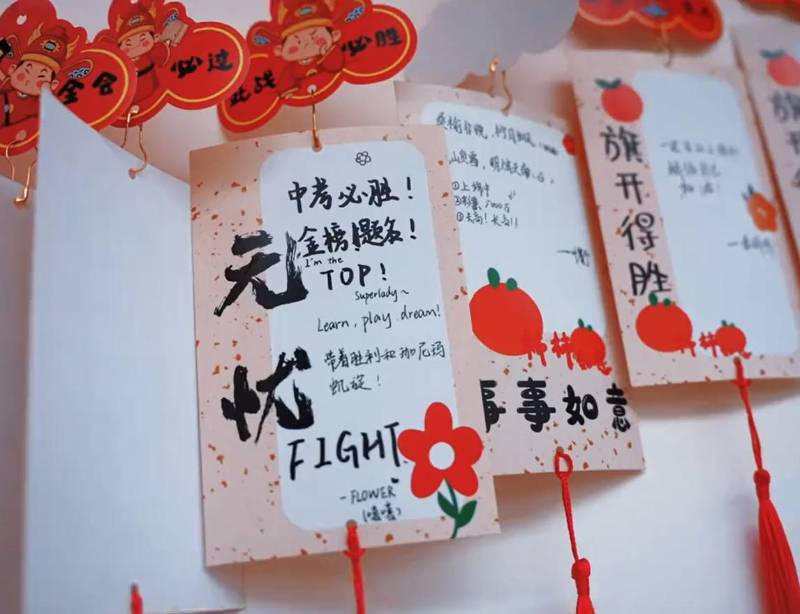 必过
此战 必胜
中考必胜！
金榜题名！
I'm the
TOP！
Superlady~
Learn, play dream!
带着胜利和珈尼玛
凯旋！
无忧
FIGHT
- FLOWER
(嘻嘻)
长高！长高！！
事事如意
旗开得胜
相信自己
加油！
旗开